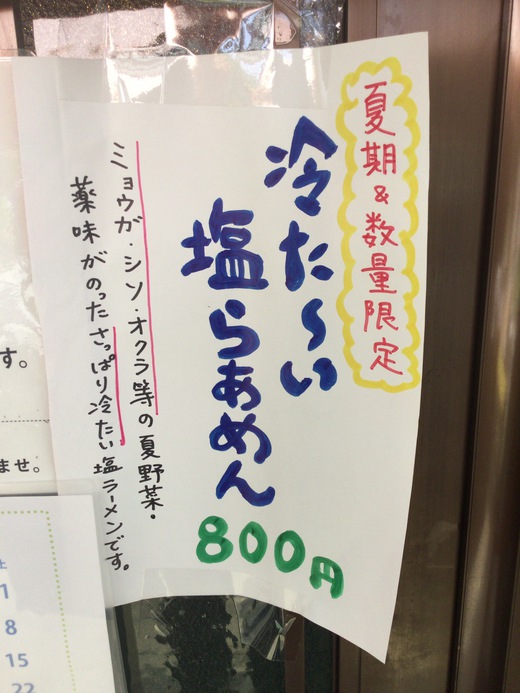 夏期&数量限定
冷た〜い
塩らあめん
800円
ミョウガ・シソ・オクラ等の夏野菜・
薬味がのったさっぱり冷たい塩ラーメンです。
す。
ませ。
土
1
8
15
22